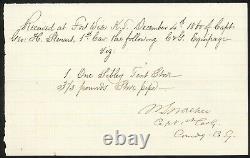 Received at Fort Wise N.T. December 4th 1861 of Capt
Geo. H. Steuart, 1st Cav the following C&G Equipage
Viz
1 One Sibley Tent Stove
3 1/2 pounds Stove pipe
Capt 1st Cavly
Comdg